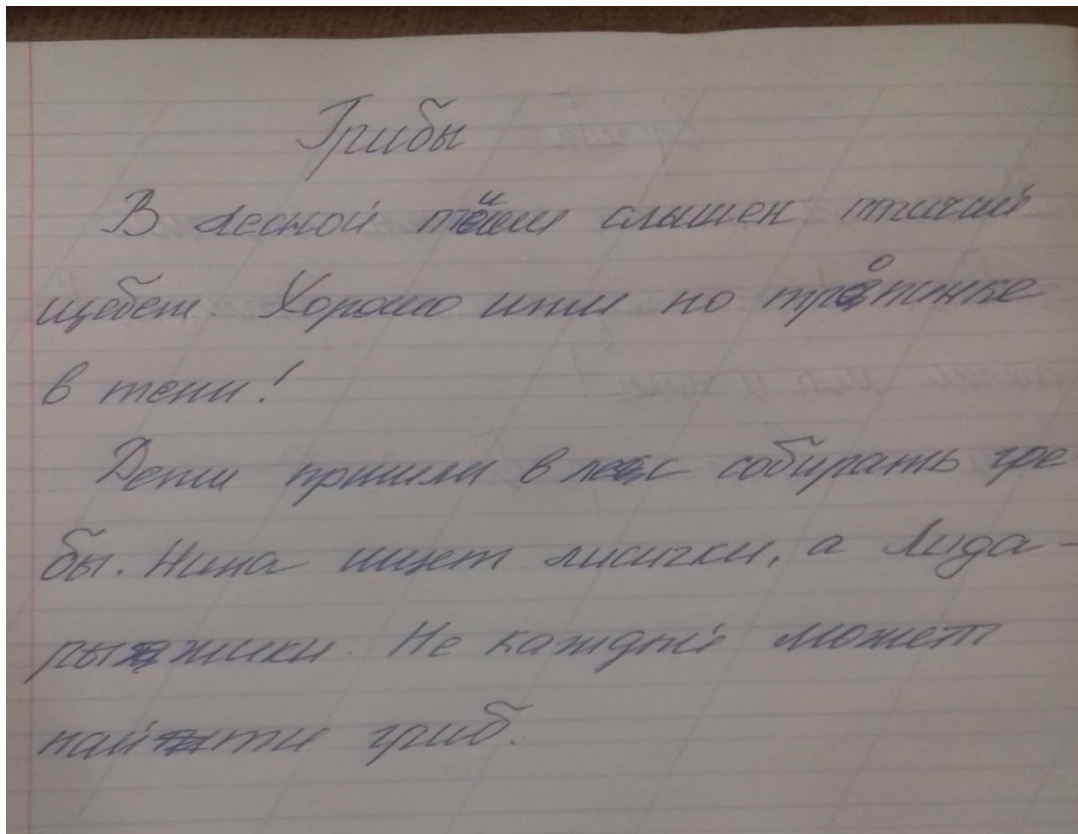 Грибы
В лесной тёши слышен птичий
щебет. Хорошо итти по тропинке
в тени!
Дети пришли в лес собирать гре-
бы. Нина ищет лисички, а Лида -
рыжики. Не каждый может
найти гриб.